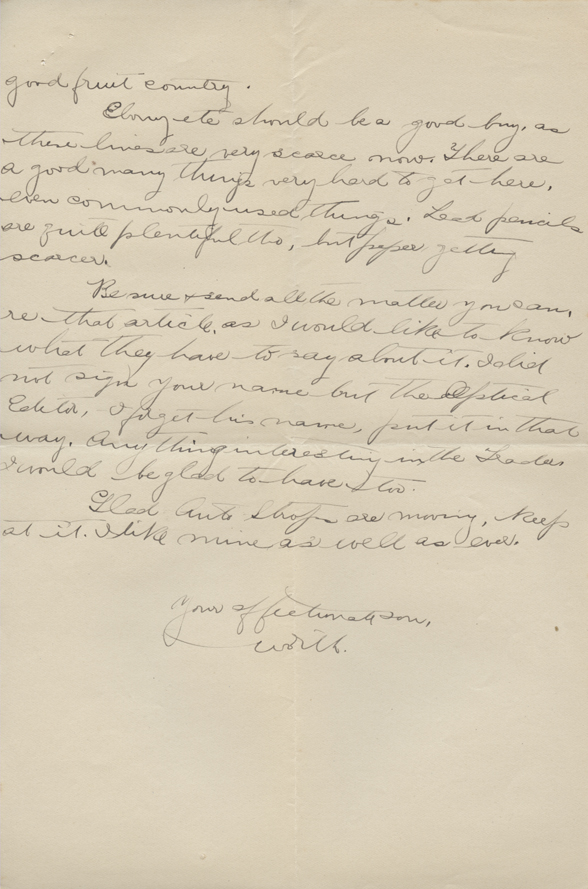 good fruit country.
Ebonyete should be a good buy, as
these lines are very scarce now. There are
a good many things very hard to get here,
even commonly used things. Lead pencils
are quite plentiful tho, but paper getting
scarcer.
Be sure & send all the matter you can,
re that article, as I would like to know
what they have to say about it. I did
not sign your name but the Optical
Editor, I forget his name, put it in that
way. Anything interesting in the Traders
I would be glad to have too.
Glad Auto Strops are moving, keep
at it. I like mine as well as ever.
Your affectionate son,
Worth.